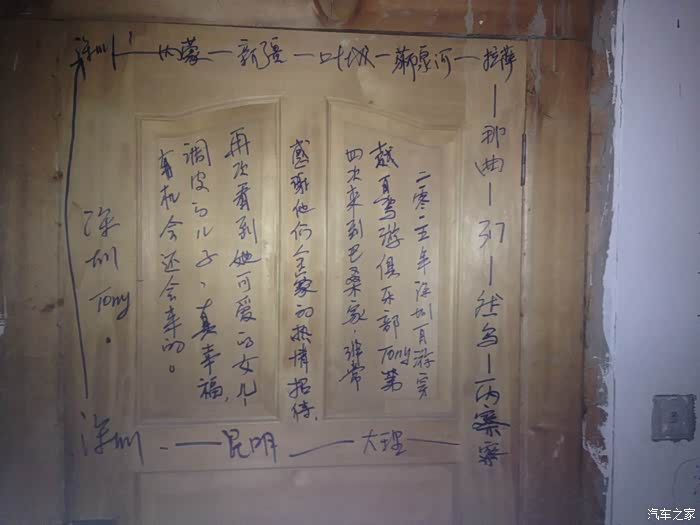 深圳—内蒙—新疆—叶城—狮泉河—拉萨
—那曲—列—然乌—丙察察
二零一五年深圳自游穿
越自驾游俱乐部Tony第
四次来到巴桑家.非常
感谢他们全家的热情招待.
再次看到她可爱的女儿、
调皮的儿子、真幸福,
有机会还会来的。
深圳Tony.
深圳.—昆明—大理—
汽车之家